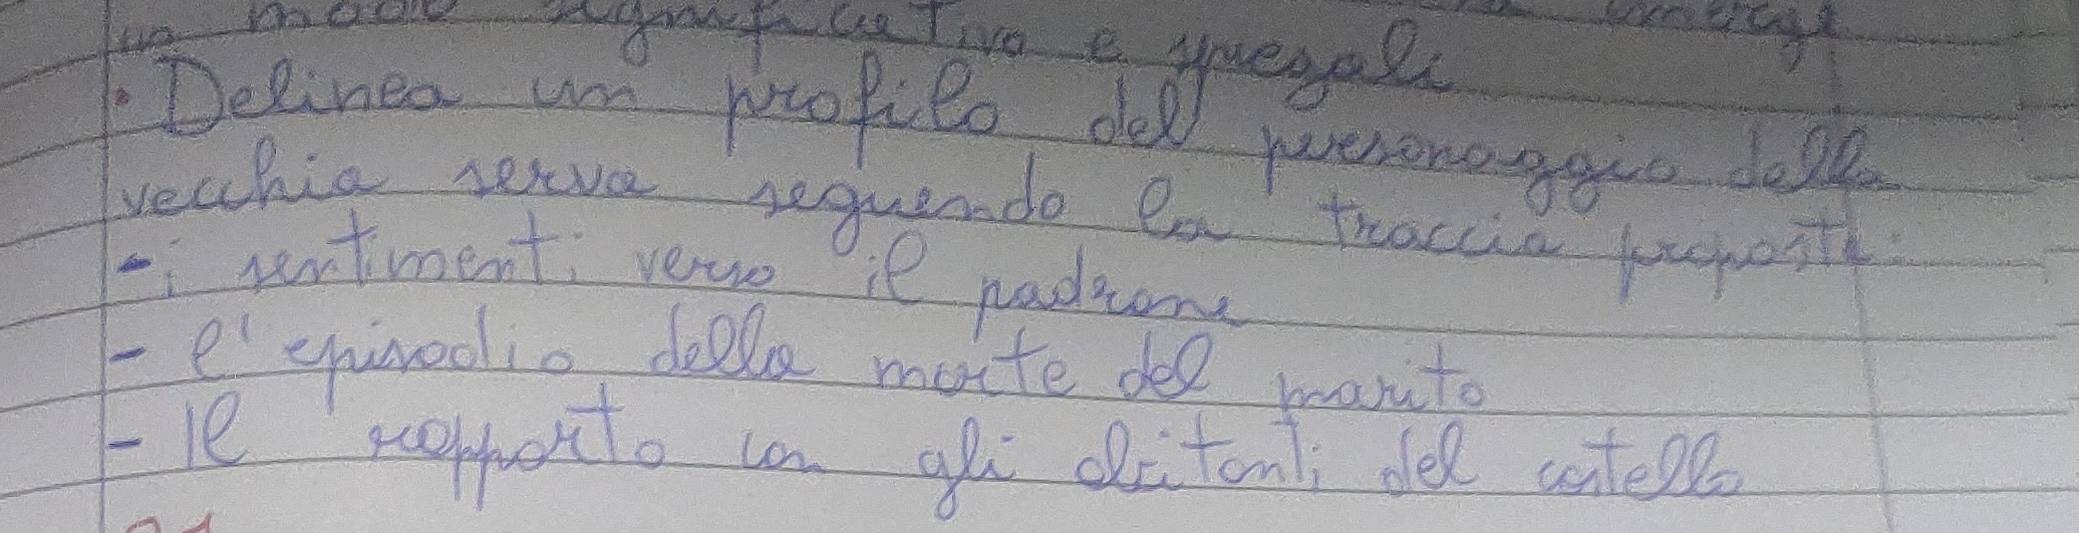 in modo significativo e spiegali
• Delinea un profilo del personaggio della
vecchia serva seguendo la traccia proposta:
- i sentimenti verso il padrone
- l'episodio della morte del marito
- Il rapporto con gli abitanti del castello